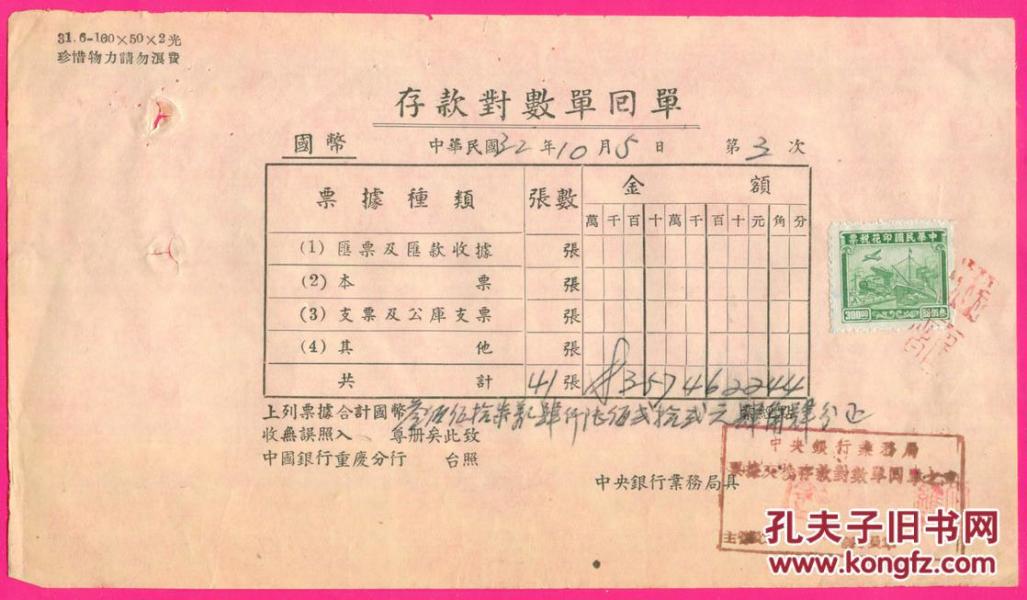 31.6-100×50×2光
珍惜物力請勿浪費
存款對數單回單
國幣 中華民國32年10月5日 第3次
票據種類 張數 金額
萬千百十萬千百十元角分
(1) 匯票及匯款收據 張
(2) 本票 張
(3) 支票及公庫支票 張
(4) 其他 張
共計 41張 $357462244
上列票據合計國幣叁佰伍拾柒萬肆仟陸佰貳拾貳元肆角肆分正
收無誤照入 尊册矣此致
中國銀行重慶分行 台照
中央銀行業務局具
中華民國印花稅票
300圓
中央銀行業務局
票據交換存款對數單回單
孔夫子旧书网
www.kongfz.com